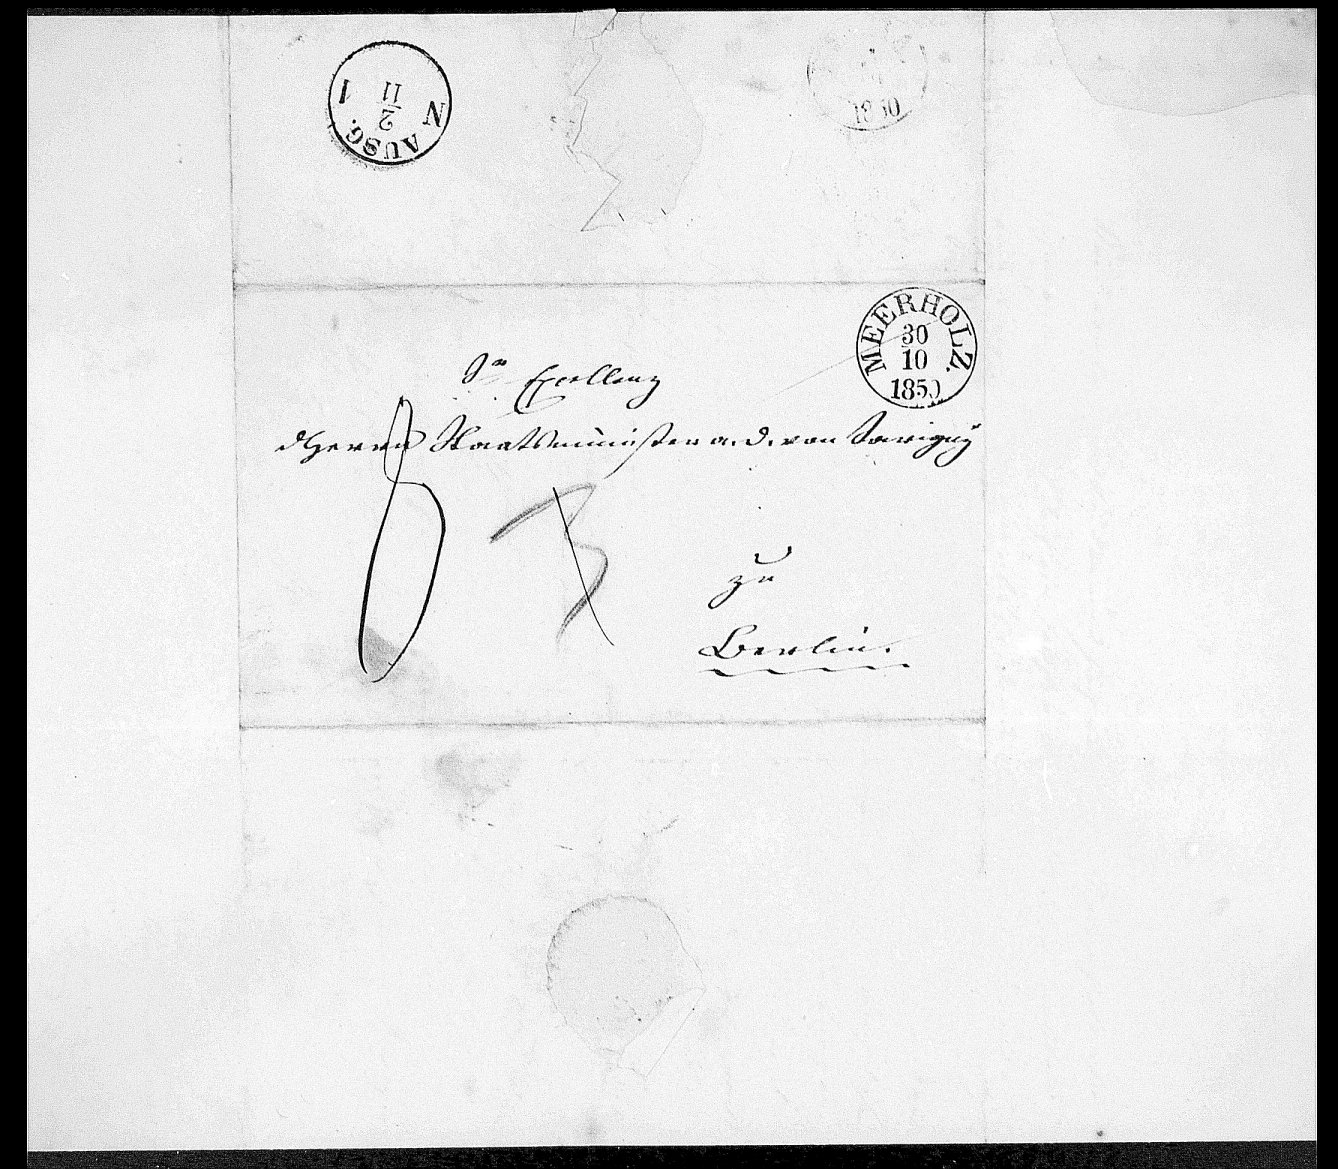 AUSG. 1
N
2
11
MEERHOLZ.
30
10
1850
Sr Excellenz
dHerrn Staatsminister a. D. von Savigny
8
3
zu
Berlin.